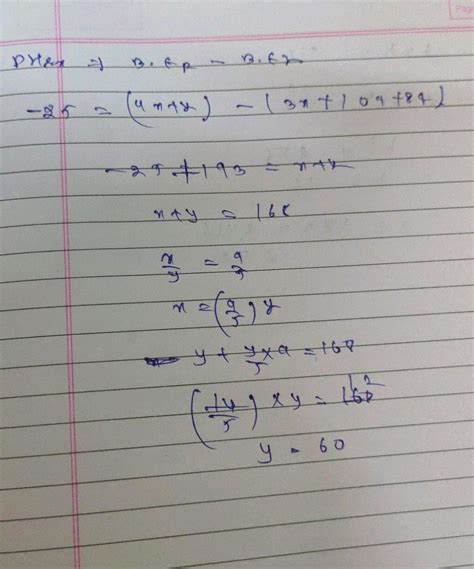 ΔHrx ⇒ B.Er - B.Er
-25 = (4x+y) - (3x+109+84)
-25+193 = x+y
x+y = 168
x/y = 9/5
x = (9/5) y
y + y×9/5 = 168
(14/5) × y = 168 12
y = 60